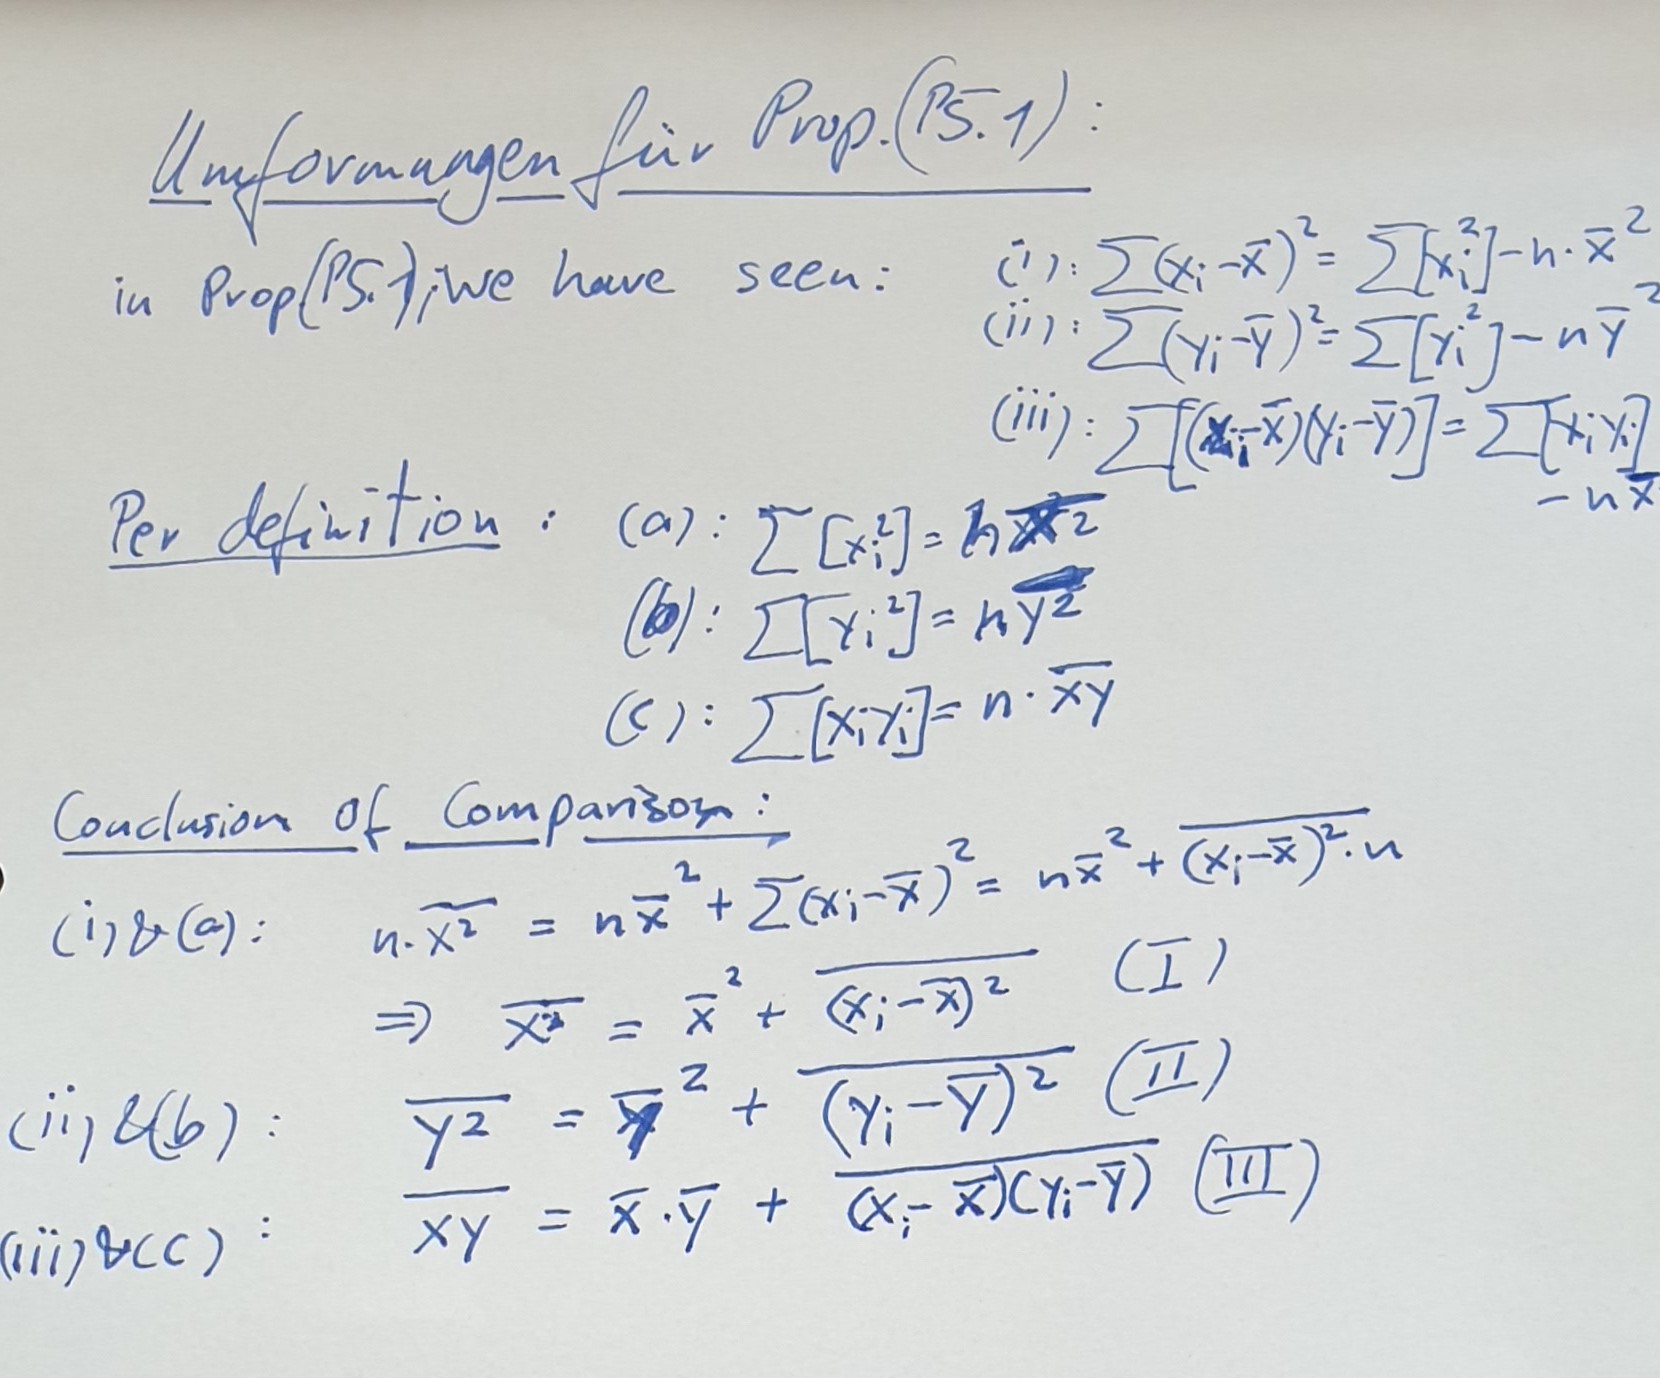 Umformungen für Prop.(P5.1):
in Prop(P5.1), we have seen: (i): ∑(xᵢ-x̄)² = ∑[xᵢ²]-n·x̄²
(ii): ∑(yᵢ-ȳ)² = ∑[yᵢ²]-nȳ²
(iii): ∑[(xᵢ-x̄)(yᵢ-ȳ)] = ∑[xᵢyᵢ]
-nx̄
Per definition: (a): ∑[xᵢ²] = n\overline{x²}
(b): ∑[yᵢ²] = n\overline{y²}
(c): ∑[xᵢyᵢ] = n·\overline{xy}
Conclusion of Comparison:
(i)&(a): n·\overline{x²} = nx̄² + ∑(xᵢ-x̄)² = nx̄² + \overline{(xᵢ-x̄)²}·n
⇒ \overline{x²} = x̄² + \overline{(xᵢ-x̄)²} (I)
(ii)&(b): \overline{y²} = ȳ² + \overline{(yᵢ-ȳ)²} (II)
(iii)&(c): \overline{xy} = x̄·ȳ + \overline{(xᵢ-x̄)(yᵢ-ȳ)} (III)